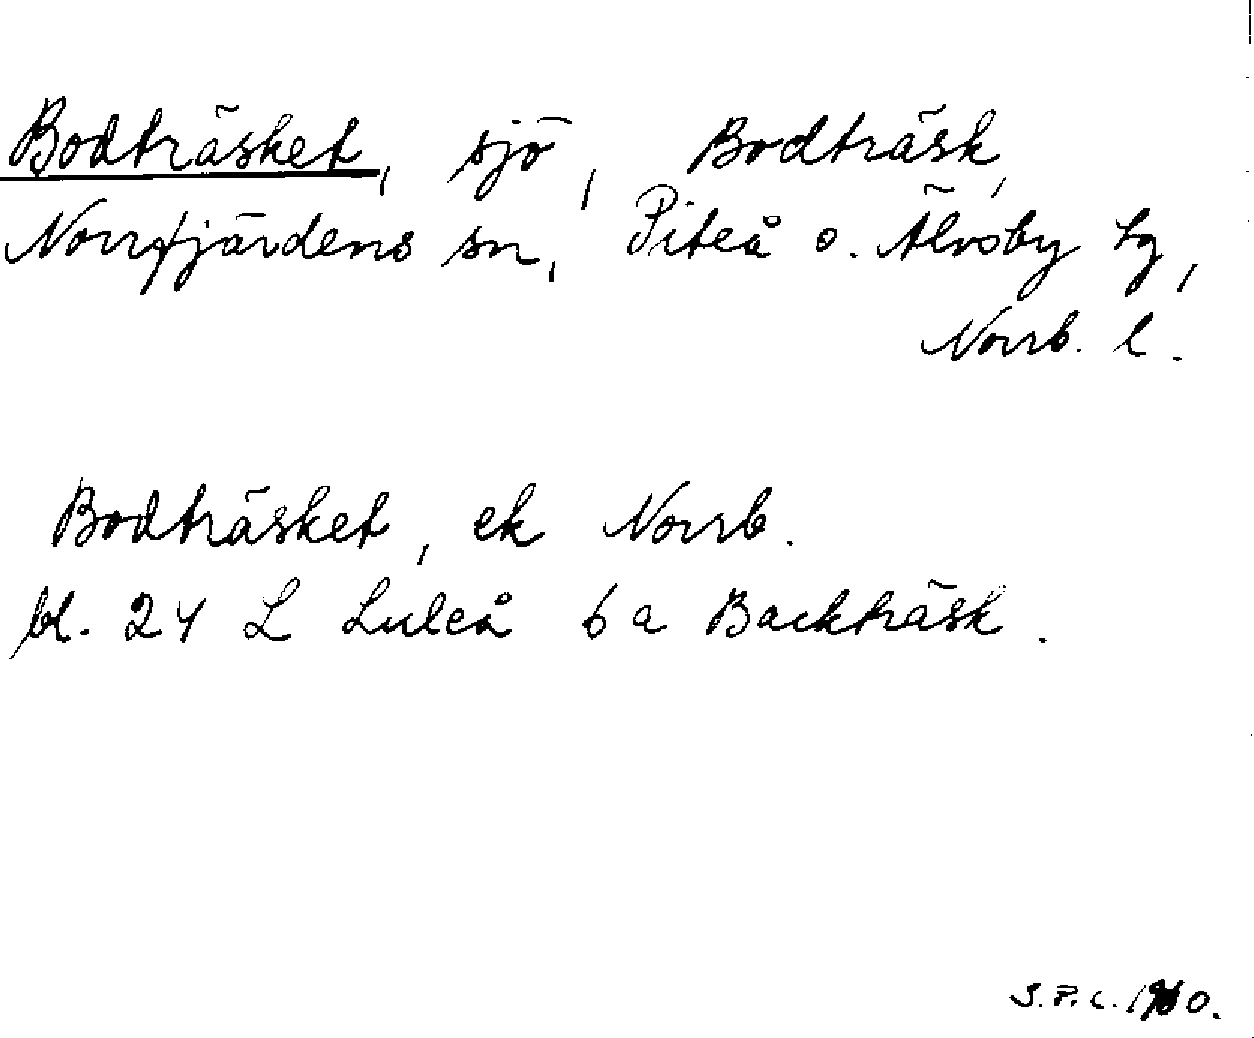 Bodträsket, sjö, Bodträsk,
Norrfjärdens sn, Piteå o. Älvsby tg,
Norrb. l.
Bodträsket, ek Norrb.
bl. 24 L Luleå 6 a Backträsk.
S.P.C. 1960.